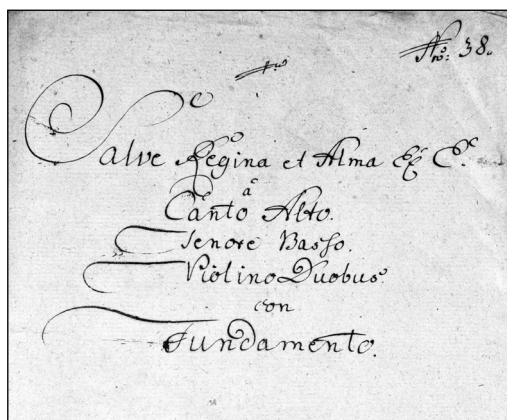 Nro: 38.
Salve Regina et Alma
à
Canto Alto.
Tenore Basso.
Violino Duobus
con
Fundamento.